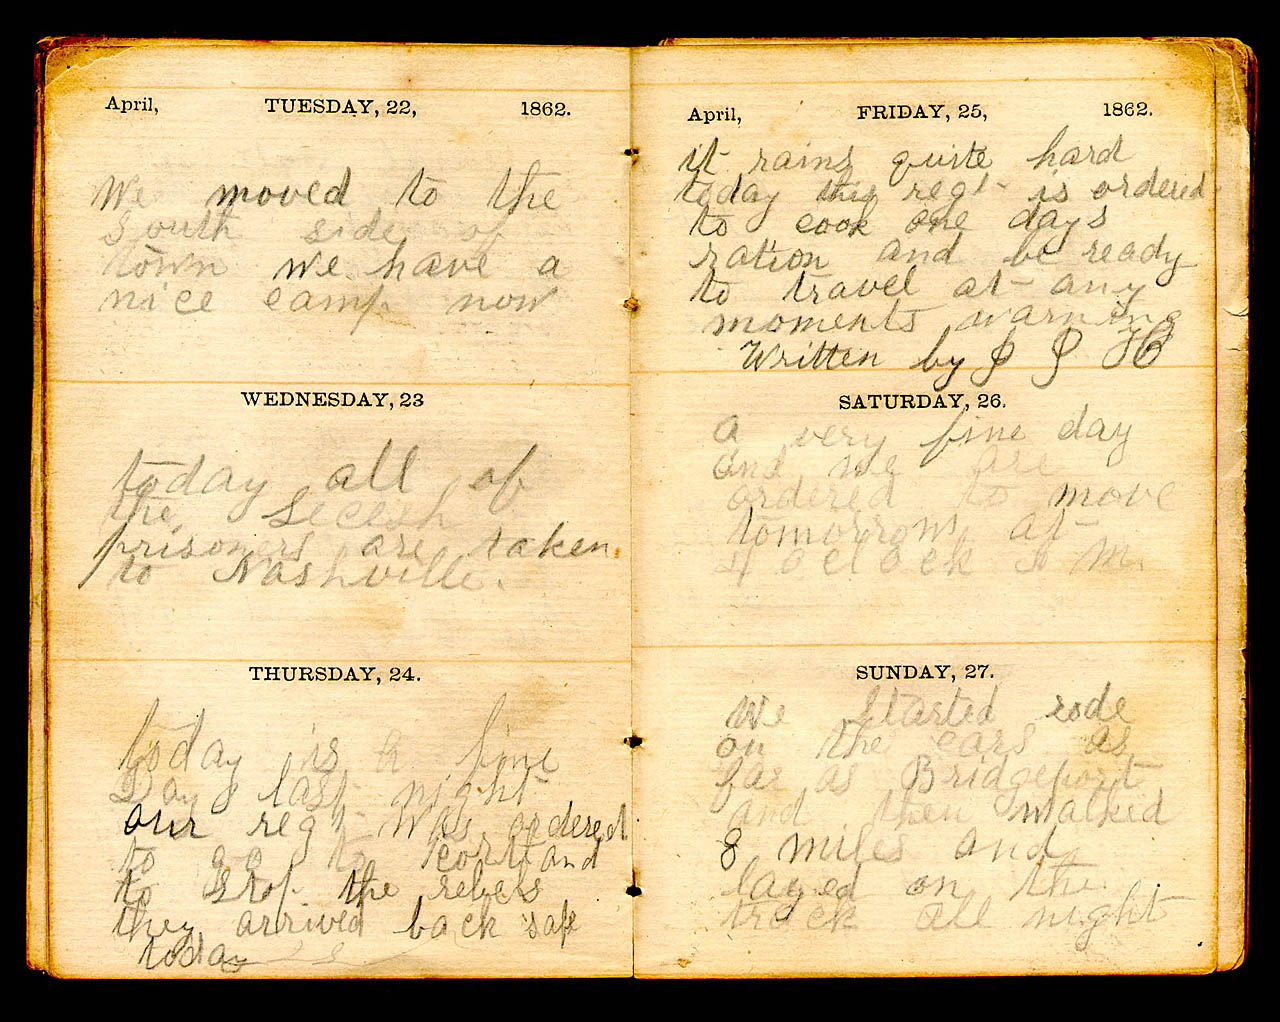 April, TUESDAY, 22, 1862.
We moved to the
South side of
town we have a
nice camp now
WEDNESDAY, 23
today all of
the Secesh
prisoners are taken
to Nashville.
THURSDAY, 24.
today is a fine
Day last night
our reg't was ordered
to go to
to stop the rebels
they arrived back safe
today
April, FRIDAY, 25, 1862.
it rains quite hard
today this regt is ordered
to cook one days
ration and be ready
to travel at any
moments warning
Written by J P
SATURDAY, 26.
a very fine day
and we are
ordered to move
tomorrow at
4 oclock M.
SUNDAY, 27.
We Started rode
on the cars as
far as Bridgeport
and then walked
8 miles and
layed on the
track all night